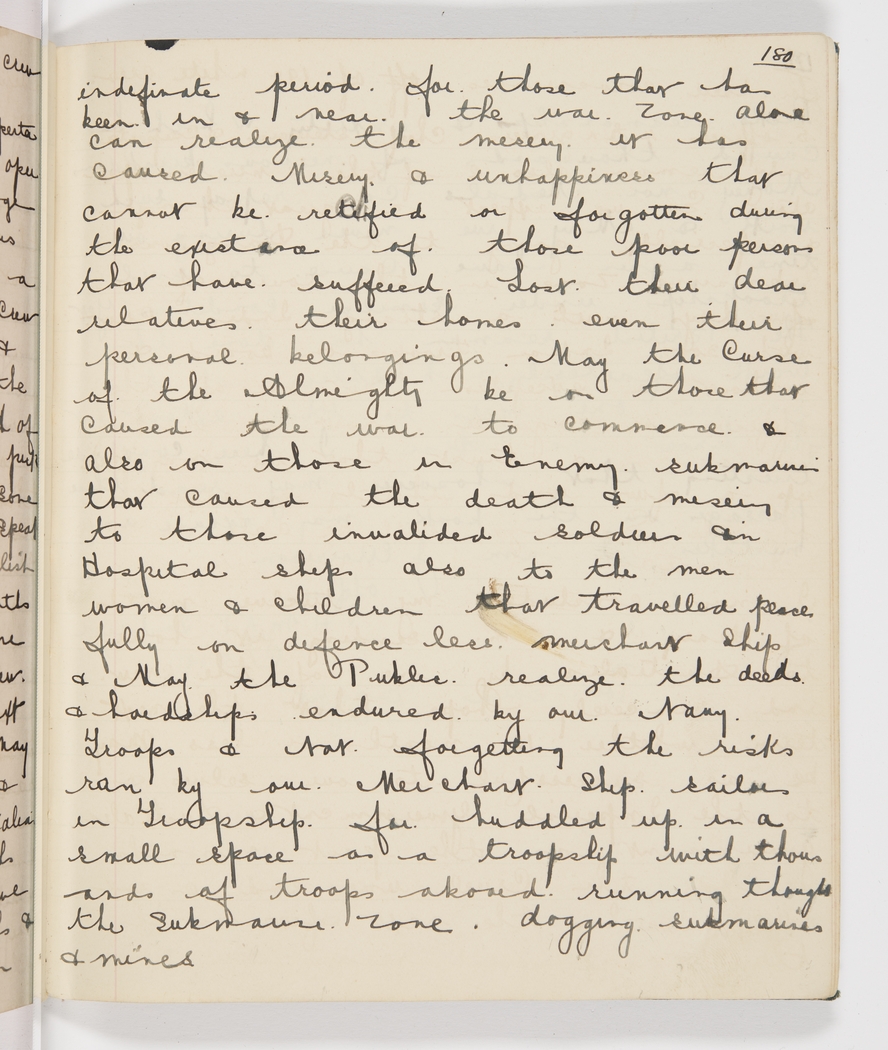 180
indefinate period. for. those that has
been. in & near. the war. zone. alone
can realize. the misery. it has
caused. Misery. & unhappiness that
cannot be. retified or forgotten during
the existance of. those poor persons
that have. suffered. Lost. their dear
relatives. their homes. even their
personal. belongings. May the Curse
of. the Almighty be on those that
caused the war. to commence. &
also on those in Enemy. submarines
that caused the death & misery
to those invalided soldiers in
Hospital ships also to the men
women & children that travelled peace
fully on defence less. merchant ship
& May. the Public. realize. the deeds.
& hardships. endured. by our. Navy.
Troops & Not. forgetting the risks
ran by our. Merchant. Ship. sailors
in Troopship. for. huddled up. in a
small space as a troopship with thous
ands of troops aboard. running though
the Submarine. zone. dogging. submarines
& mines